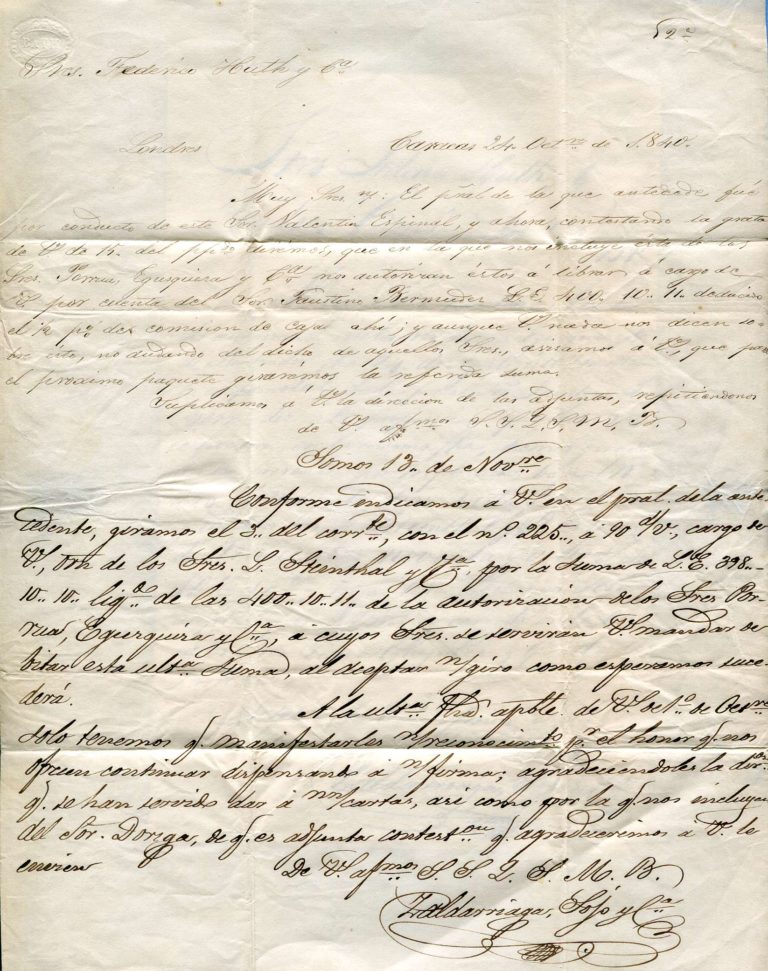 2ª
Sres. Federico Huth y Cª
Londres Caracas 24 Octre de 1840.
Muy Sres. ns: El pral de la que antecede fué
por conducto de este Sor. Valentin Espinal, y ahora contestando la grata
de Vs. de 15. del ppdo diremos, que en la que nos incluye esta de los
Sres. Porrua, Egusquiza y Cª nos autorizan éstos á librar á cargo de
V. por cuenta del Sor. Faustino Bermudez L.E. 400.. 10.. 11. deducido
el ½ p% de comision de caja ahi; y aunque Vs. nada nos dicen so-
bre esto, no dudando del dicho de aquellos Sres., avisamos á Vs., que por
el proximo paquete girarémos la referida suma.
Suplicamos á V. la direccion de las adjuntas, repitiendonos
de V. afmos S. S. Q. S. M. B.
Somos 13.. de Novre
Conforme indicamos á V. en el pral. de la ante-
cedente, giramos el 3.. del corrte, con el nº. 225.., a 90 d/v., cargo de
V., orn de los Sres. L. Steinthal y Cª, por la suma de L.E. 398..
10.. 10.. liqdo de las 400.. 10.. 11.. de la autorizacion de los Sres Por-
rua, Egusquiza y Cª, á cuyos Sres. se servirán V. mandar de-
bitar esta ultª suma, al aceptar n/giro como esperamos suce-
derá.
A la ultª apble. de V. de 1º. de Octre
solo tenemos q. manifestarles n/reconocimto pr el honor q. nos
ofrecen continuar dispensando á n/firma; agradeciendoles la diron
q. se han servido dar á nn/cartas, asi como por la q. nos incluyen
del Sor. Doriga, de q. es adjunta conteston q. agradecerémos a V. le
envien De V. afmos S. S. Q. S. M. B.
Zaldarriaga, Sojo y Cª